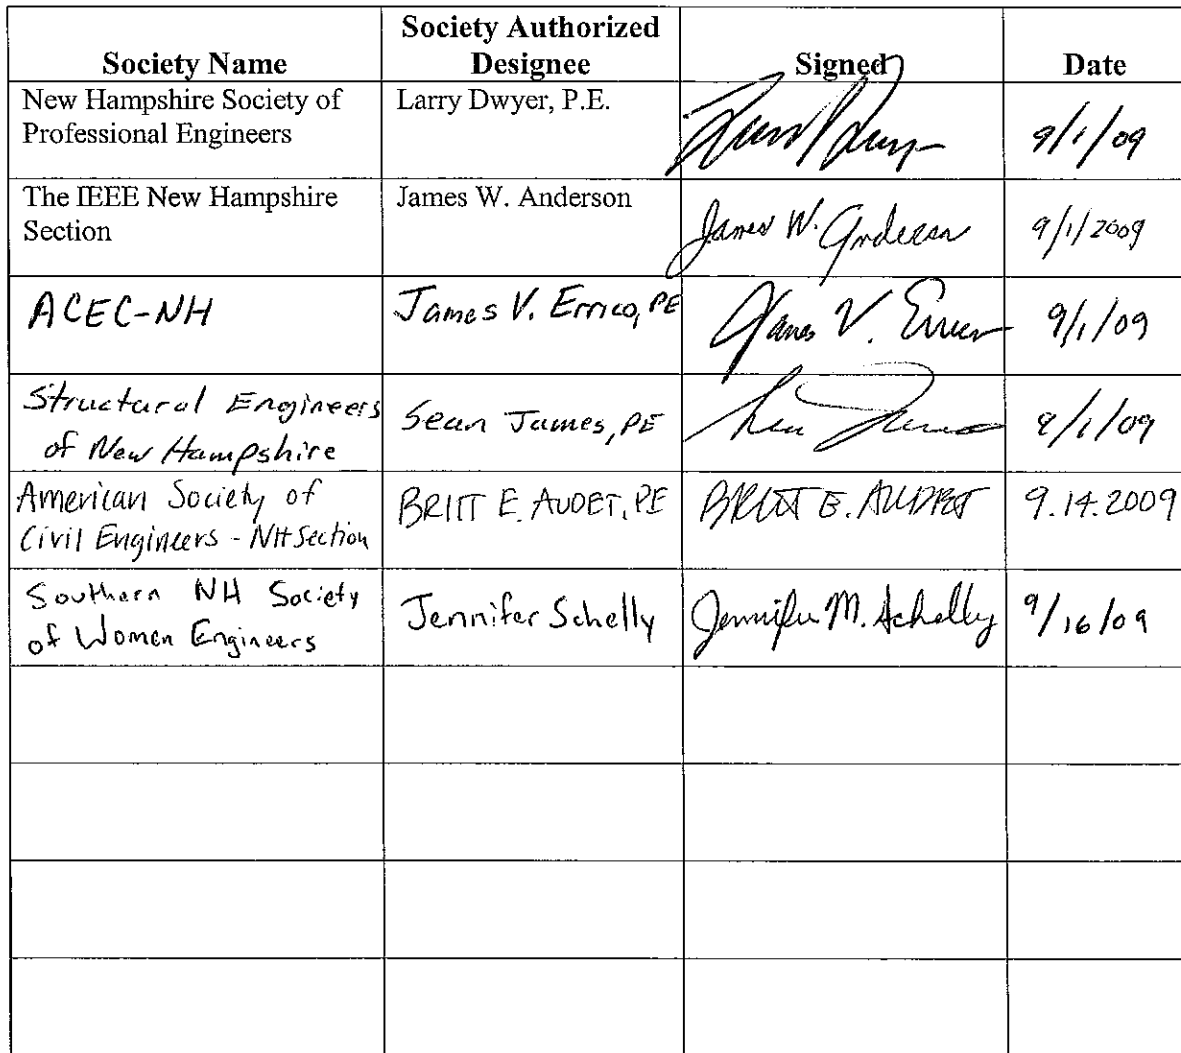 Society Name
Society Authorized
Designee
Signed
Date
New Hampshire Society of
Professional Engineers
Larry Dwyer, P.E.
9/1/09
The IEEE New Hampshire
Section
James W. Anderson
James W. Anderson
9/1/2009
ACEC-NH
James V. Errico, PE
James V. Errico
9/1/09
Structural Engineers
of New Hampshire
Sean James, PE
9/1/09
American Society of
Civil Engineers - NH Section
BRITT E. AUDET, PE
BRITT E. AUDET
9.14.2009
Southern NH Society
of Women Engineers
Jennifer Schelly
Jennifer M. Schelly
9/16/09